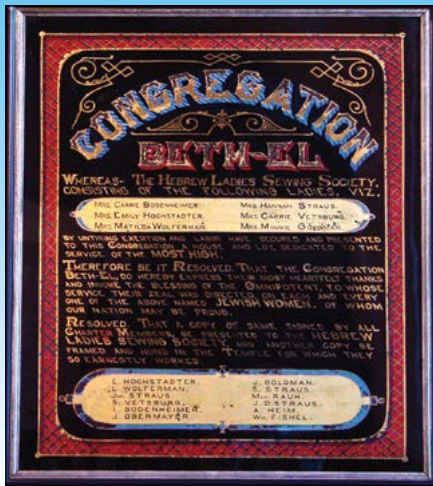 CONGREGATION
BETH-EL
WHEREAS- THE HEBREW LADIES SEWING SOCIETY,
CONSISTING OF THE FOLLOWING LADIES, VIZ.
MRS. CARRIE BODENHEIMER. MRS. HANNAH STRAUS.
MRS. EMILY HOCHSTADTER. MRS. CARRIE VETSBURG.
MRS. MATILDA WOLFERMAN. MRS. MINNIE GOLDMAN.
BY UNTIRING EXERTION AND LABOR HAVE SECURED AND PRESENTED
TO THIS CONGREGATION A HOUSE AND LOT, DEDICATED TO THE
SERVICE OF THE MOST HIGH.
THEREFORE BE IT RESOLVED THAT THE CONGREGATION
BETH-EL, DO HEREBY EXPRESS THEIR MOST HEARTFELT THANKS
AND INVOKE THE BLESSING OF THE OMNIPOTENT, TO WHOSE
SERVICE THEIR ZEAL WAS DIRECTED, ON EACH AND EVERY
ONE OF THE ABOVE NAMED JEWISH WOMEN, OF WHOM
OUR NATION MAY BE PROUD.
RESOLVED, THAT A COPY OF SAME SIGNED BY ALL
CHARTER MEMBERS, BE PRESENTED TO THE HEBREW
LADIES SEWING SOCIETY, AND ANOTHER COPY BE
FRAMED AND HUNG IN THE TEMPLE FOR WHICH THEY
SO EARNESTLY WORKED.
E. HOCHSTADTER. J. GOLDMAN.
L. WOLFERMAN. S. STRAUS.
STRAUS. RAUH.
S. VETSBURG. J. D. STRAUS.
I. BODENHEIMER. A. HEIM.
J. OBERMAYER. WM. FISHEL.